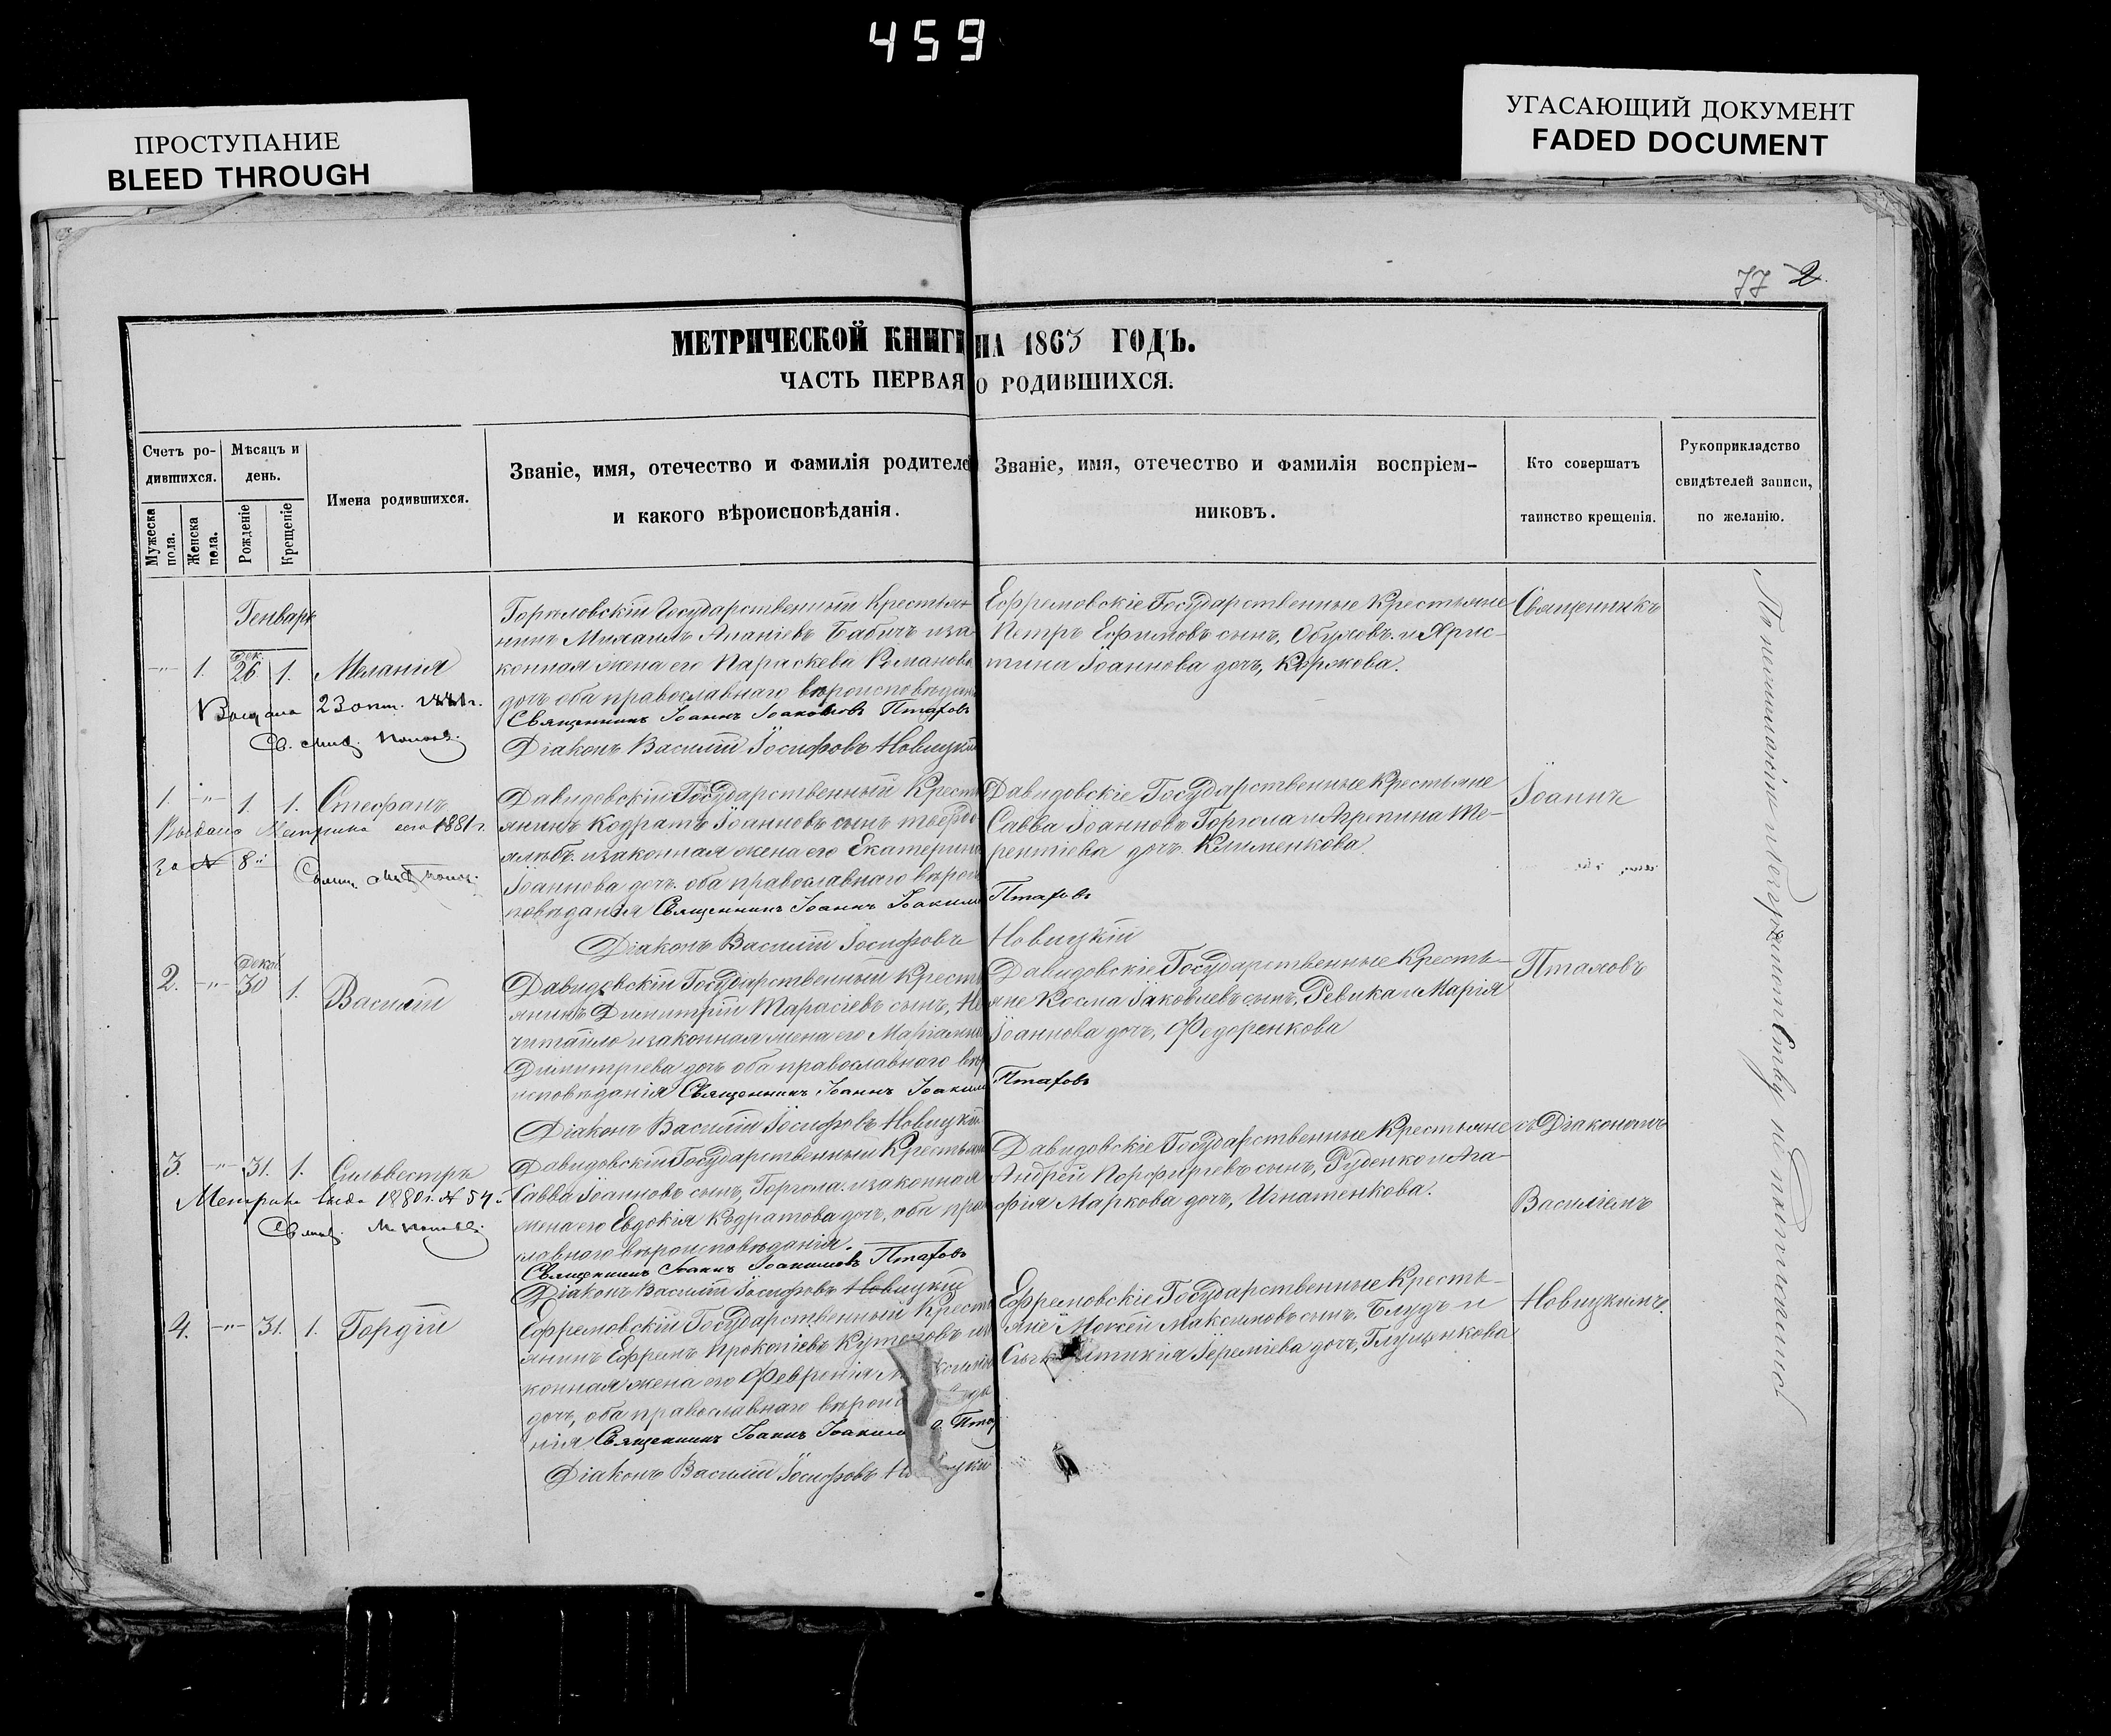 459
ПРОСТУПАНИЕ
BLEED THROUGH
УГАСАЮЩИЙ ДОКУМЕНТ
FADED DOCUMENT
77 2.
МЕТРИЧЕСКОЙ КНИГИ НА 1863 ГОДЪ.
ЧАСТЬ ПЕРВАЯ О РОДИВШИХСЯ.
Счетъ ро-
дившихся.
Мужеска пола.
Женска пола.
Мѣсяцъ и
день.
Рожденіе
Крещеніе
Имена родившихся.
Званіе, имя, отечество и фамилія родителе
и какого вѣроисповѣданія.
Званіе, имя, отечество и фамилія воспріем-
никовъ.
Кто совершатъ
таинство крещенія.
Рукоприкладство
свидѣтелей записи,
по желанію.
Генварь
-"- 1. Дек. 26 1. Меланія
23 окт.
Государственный Крестьян
нинъ Михаилъ Ананіевъ Бабичъ и за
конная жена его Параскева Романова
дочь оба православнаго вѣроисповѣдан
Священникъ Іоаннъ Іоакимовъ Птаховъ
Діаконъ Василій Іосифовъ Новицкій
Ефремовскіе Государственные Крестьяне
Петръ Ефимовъ сынъ, Обуховъ и Хрис-
тина Іоаннова дочь, Коржова.
Священникъ
1. -"- 1. 1. Стефанъ
Выдана Метрика 1881 г.
за № 8й
Давидовскій Государственный Крест
янинъ Кодратъ Іоанновъ сынъ твердо
хлѣбъ и законная жена его Екатерина
Іоаннова дочь. оба православнаго вѣрои
повѣданія Священникъ Іоаннъ Іоакимо
Птаховъ
Діаконъ Василій Іосифовъ Новицкій
Давидовскіе Государственные Крестьяне
Савва Іоанновъ Горгола и Агрепина Те-
рентіева дочь Клименкова.
Іоаннъ
2. -"- Декаб 30 1. Василій
Давидовскій Государственный Кресть
янинъ Димитрій Тарасіевъ сынъ, Не
читайло и законная жена его Маріанна
Димитріева дочь оба православнаго вѣр
исповѣданія Священникъ Іоаннъ Іоаким
Птаховъ
Діаконъ Василій Іосифовъ Новицкій
Давидовскіе Государственные Кресть-
яне Косма Іаковлевъ сынъ, Ревика и Марія
Іоаннова дочь, Федоренкова
Птаховъ
3. -"- 31. 1. Сильвестръ
Метрика выда 1880 г. № 54.
Давидовскій Государственный Крестьян
Савва Іоанновъ сынъ, Горгола и законная
жена его Евдокія Кодратова дочь, оба пра
славнаго вѣроисповѣданія.
Священникъ Іоаннъ Іоакимовъ Птаховъ
Діаконъ Василій Іосифовъ Новицкій
Давидовскіе Государственные Крестьяне
Андрей Порфиріевъ сынъ, Руденко и Ага-
фія Маркова дочь, Игнатенкова.
съ Діакономъ
Василіемъ
4. -"- 31. 1. Гордій
Ефремовскій Государственный Крест
янинъ Ефремъ Прокопіевъ
конная жена его Февронія
дочь, оба православнаго вѣроис
нія Священникъ Іоаннъ Іоаким
Діаконъ Василій Іосифовъ
Ефремовскіе Государственные Кресть-
яне Моѵсей Максимовъ сынъ. Блудъ и
Іереміева дочь, Глущенкова
Новицкимъ.
По неимианію и неграмотству